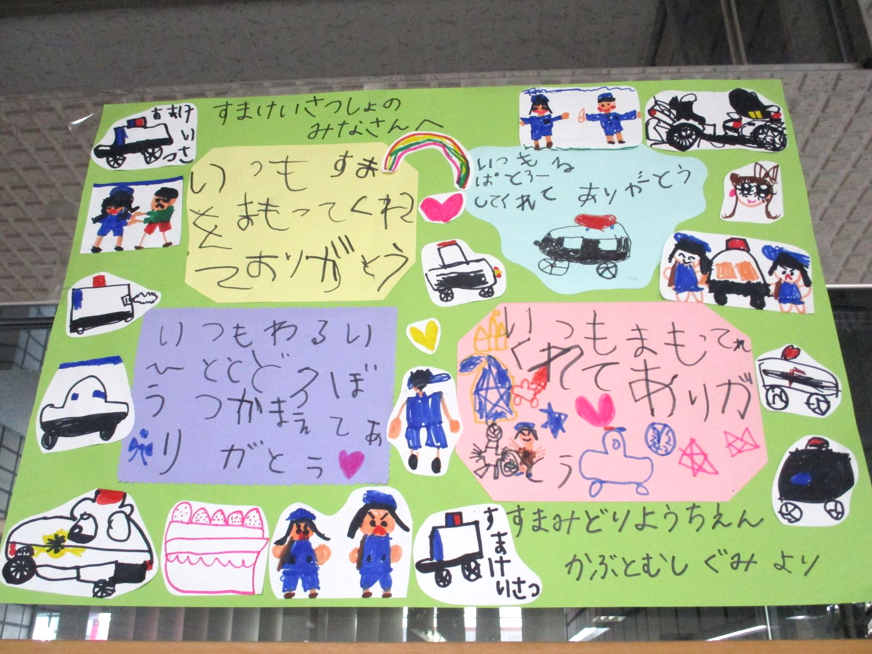 すまけいさつしょの
みなさんへ
すまけ
い
さつ
いつも すま
をまもってくれ
てありがとう
いつも
ぱとろーる
してくれて ありがとう
いつもわるい
ひととどろぼ
うつかまえてあ
りがとう
いつもまもって
くれてありが
とう
すまけいさつ
すまみどりようちえん
かぶとむし ぐみ より